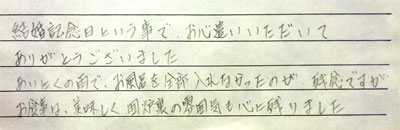 結婚記念日という事で、お心遣いいただいて
ありがとうございました
あいにくの雨で、お風呂を全部入れなかったのが、残念ですが
お食事は、美味しく囲炉裏の雰囲気も心に残りました